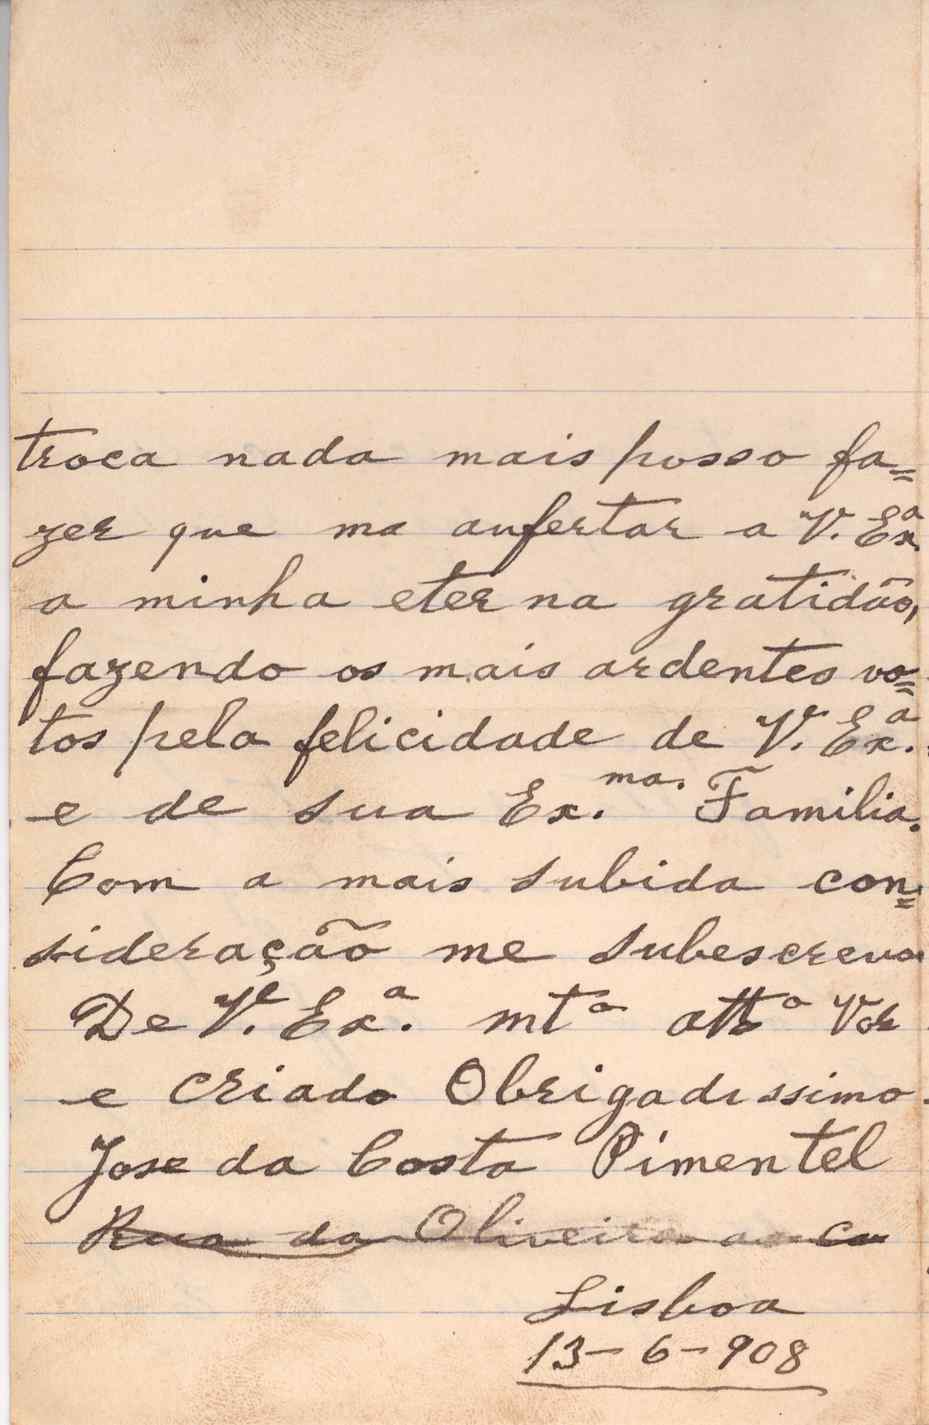 troca nada mais posso fa=
zer que ma aufertar a V. Exª
a minha eterna gratidão,
fazendo os mais ardentes vo=
tos pela felicidade de V. Ex.ª
e de sua Ex.ma. Familia.
Com a mais subida con=
sideração me subescrevo
De V.e Exª. mtº attº Vor
e criado Obrigadissimo
Jose da Costa Pimentel
Rua da Oliveira ao Ca
Lisboa
13-6-908